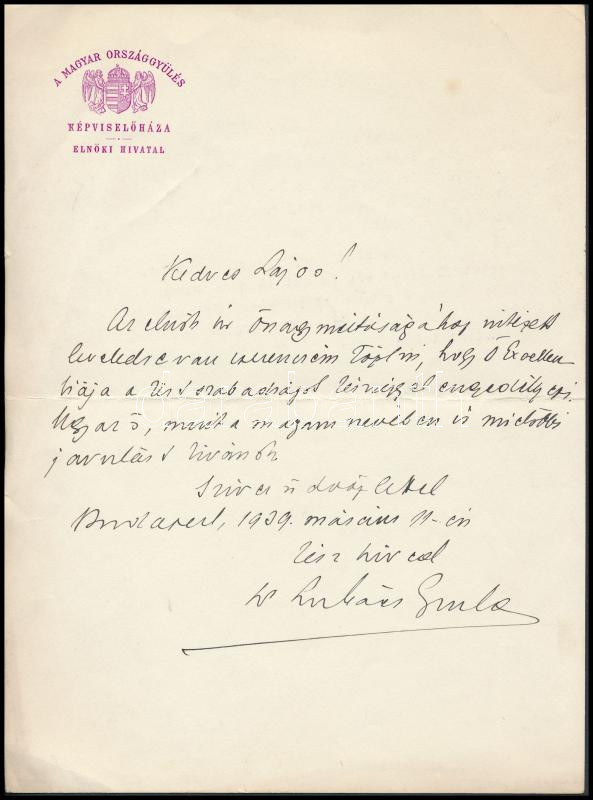 A MAGYAR ORSZÁGGYÜLÉS
KÉPVISELŐHÁZA
ELNÖKI HIVATAL
Kedves Lajos!
Az elnök úr Önagyméltóságához intézett
leveledre van szerencsém közölni, hogy Ő Excellen-
tiája a kért szabadságot készséggel engedélyezi.
Ugy az ő, mint a magam nevében is mielőbbi
javulást kivánok
Szives üdvözlettel
Budapest, 1939. március 11-én
kész hived
Dr Lukács Gyula